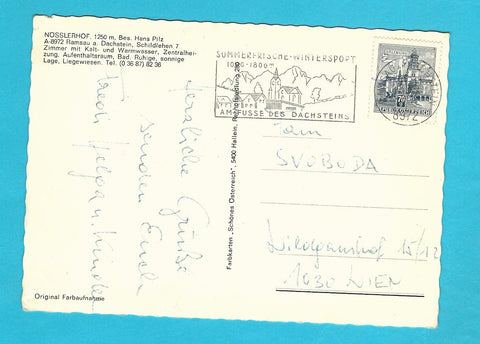 NÖSSLERHOF, 1250 m, Bes. Hans Pilz
A-8972 Ramsau a. Dachstein, Schildlehen 7
Zimmer mit Kalt- und Warmwasser, Zentralhei-
zung, Aufenthaltsraum, Bad. Ruhige, sonnige
Lage, Liegewiesen. Tel. (0 36 87) 82 36
SOMMERFRISCHE-WINTERSPORT
1000-1800m
AM FUSSE DES DACHSTEINS
8972
Herzliche Grüße
senden Euch
Fredi Helga u. Kinder
Farbkarten „Schönes Österreich", 5400 Hallein,
Fam
SVOBODA
Wildganshof 15/12
1030 WIEN
Original Farbaufnahme